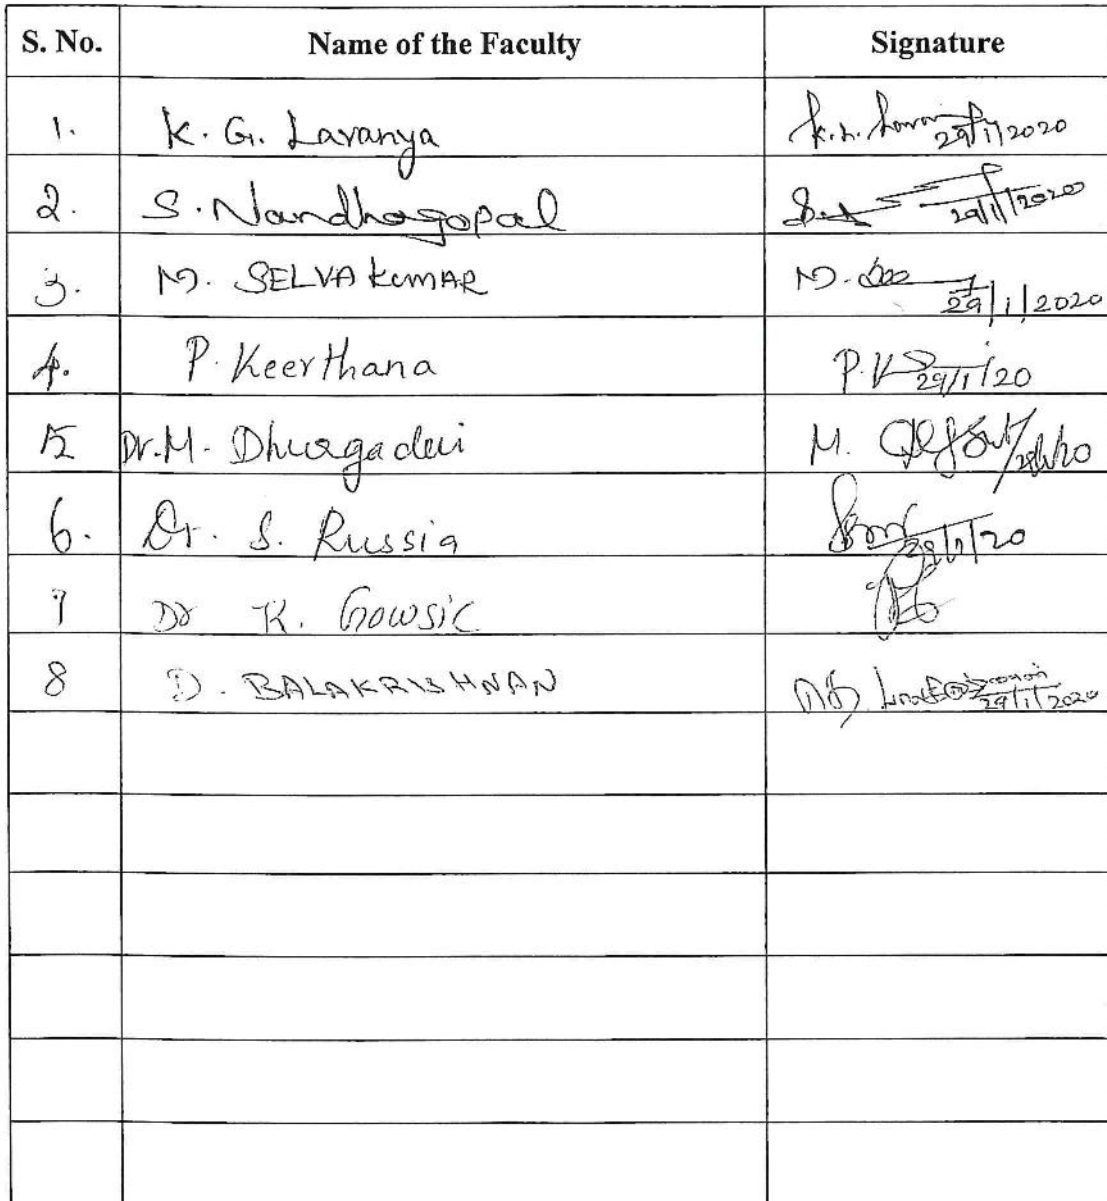 S. No. Name of the Faculty Signature
1. K. G. Lavanya 29/1/2020
2. S. Nandhagopal 29/1/2020
3. M. SELVA KUMAR M. 29/1/2020
4. P. Keerthana P. K 29/1/20
5 Dr. M. Dhurgadevi M.
6. Dr. S. Russia 29/1/20
7 Dr K. Gowsic
8 D. BALAKRISHNAN 29/1/2020